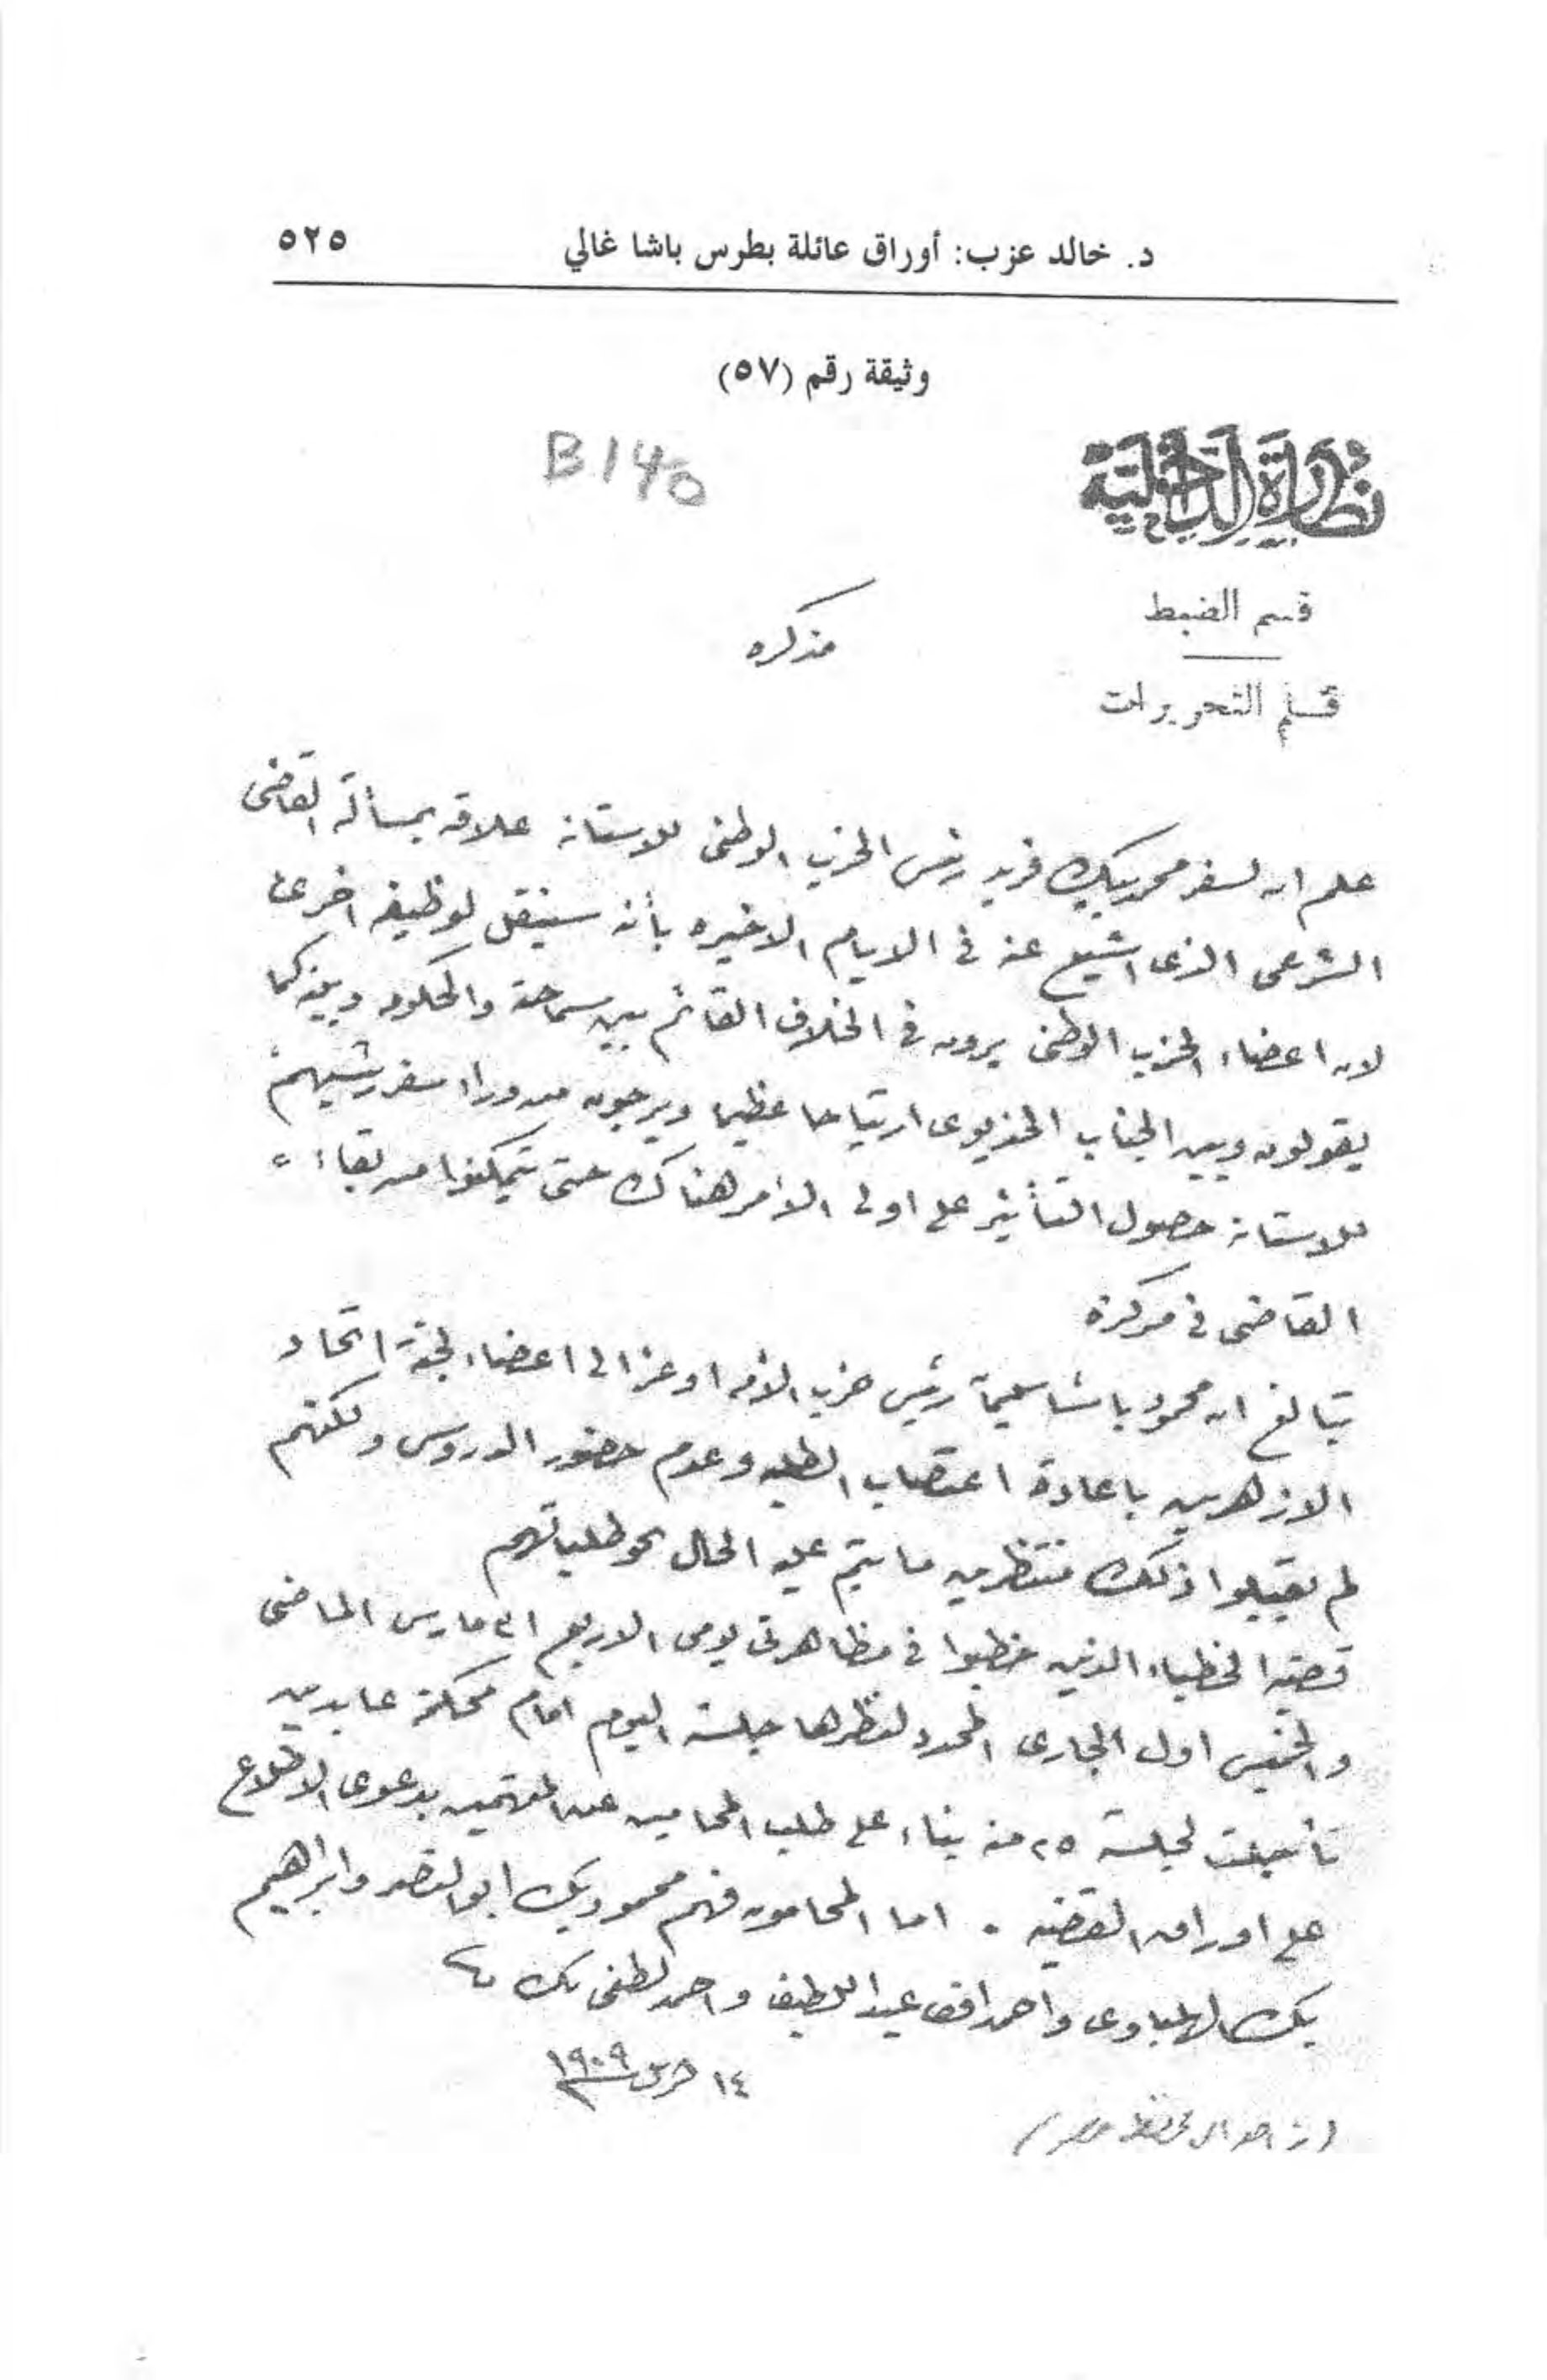 د. خالد عزب: أوراق عائلة بطرس باشا غالي
٥٢٥
وثيقة رقم (٥٧)
B140
نظارة الداخلية
قسم الضبط
قلم التحريرات
مذكره
علم ان لسفر محمد بيك فريد رئيس الحزب الوطنى للاستانه علاقه بمسألة القاضى
الشرعى الذى اشيع عنه فى الايام الاخيره بأنه سينقل لوظيفه اخرى
لان اعضاء الحزب الوطنى يرون فى الخلاف القائم بين سماحته والحكومه وبينه كما
يقولون وبين الجناب الخديوى ارتياحا عظيما ويرجون من وراء سفر رئيسهم
للاستانه حصول التأثير على اولى الامر هناك حتى يتمكنوا من بقاء
القاضى فى مركزه
تبالغ ان محمود باشا سليمان رئيس حزب الأمه اوعز الى اعضاء لجنة اتحاد
الازهريين باعادة اعتصاب الطلبه وعدم حضور الدروس ولكنهم
لم يقبلوا ذلك منتظرين ما يتم عليه الحال نحو طلباتهم
قضية الخطباء الذين خطبوا فى مظاهرتى يومى الاربع ٣١ مارس الماضى
والخميس اول الجارى المحدد لنظرها جلسة اليوم امام محكمة عابدين
تأجلت لجلسة ٢٥ منه بناء على طلب المحامين عن المتهمين بدعوى الاطلاع
على اوراق القضيه . اما المحامون فهم محمود بك ابو النصر وابراهيم
بك الهلباوى واحمد افندى عبد اللطيف واحمد لطفى بك
١٤ ١٩٠٩
محافظ مصر